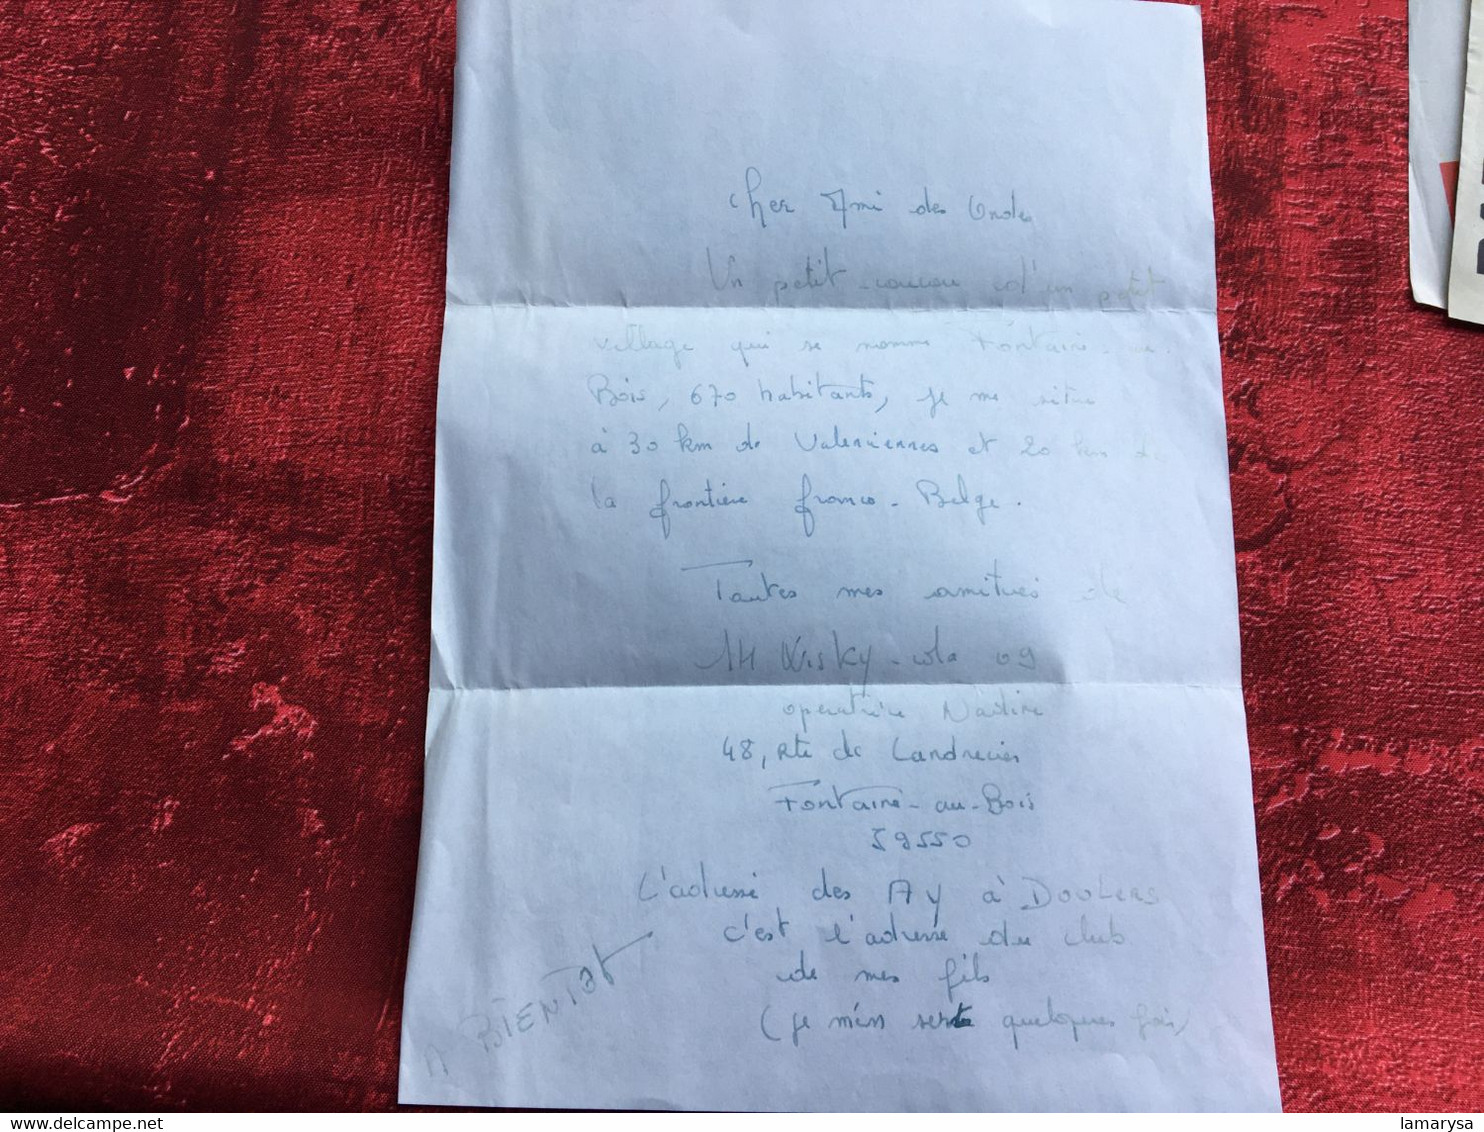 Cher Ami des Ondes
Un petit coucou d'un petit
village qui se nomme Fontaine-au
Bois, 670 habitants, je me situe
à 30 km de Valenciennes et 20 km de
la frontière franco-Belge.
Toutes mes amitiés de
14 Wisky-cola 09
opératrice Nadine
48, Rte de Landrecies
Fontaine-au-Bois
59550
L'adresse des AY à Doulers
c'est l'adresse du club
de mes fils
(je m'en sers quelques fois)
A BIENTOT
lamarysa